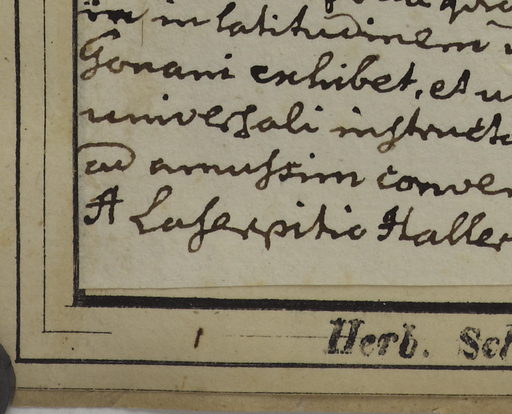 in latitudinem
Gouani exhibet, et u
universali instructa
ad amussim conven
A Laserpitio Haller
Herb. Sch